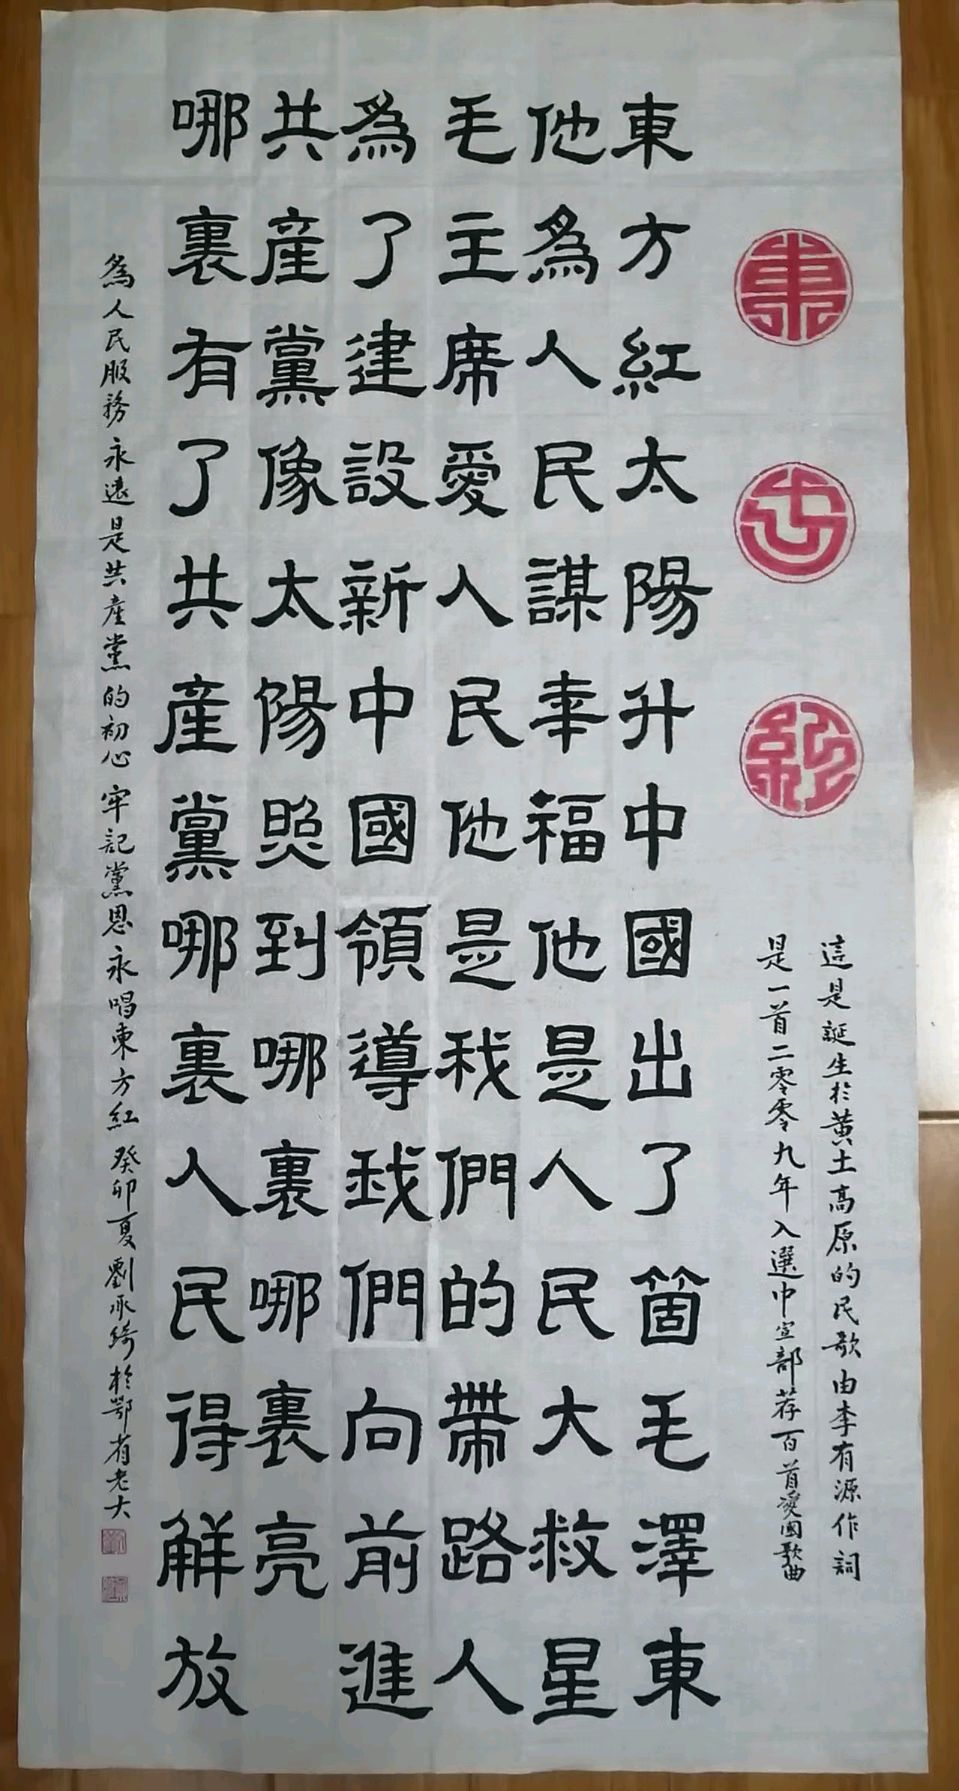 東方紅
這是誕生於黃土高原的民歌由李有源作詞
是一首二零零九年入選中宣部荐百首愛國歌曲
東方紅太陽升中國出了箇毛澤東
他為人民謀幸福他是人民大救星
毛主席愛人民他是我們的帶路人
為了建設新中國領導我們向前進
共產黨像太陽照到哪裏哪裏亮
哪裏有了共產黨哪裏人民得解放
為人民服務永遠是共產黨的初心牢記黨恩永唱東方紅癸卯夏劉承綺於鄂省老大